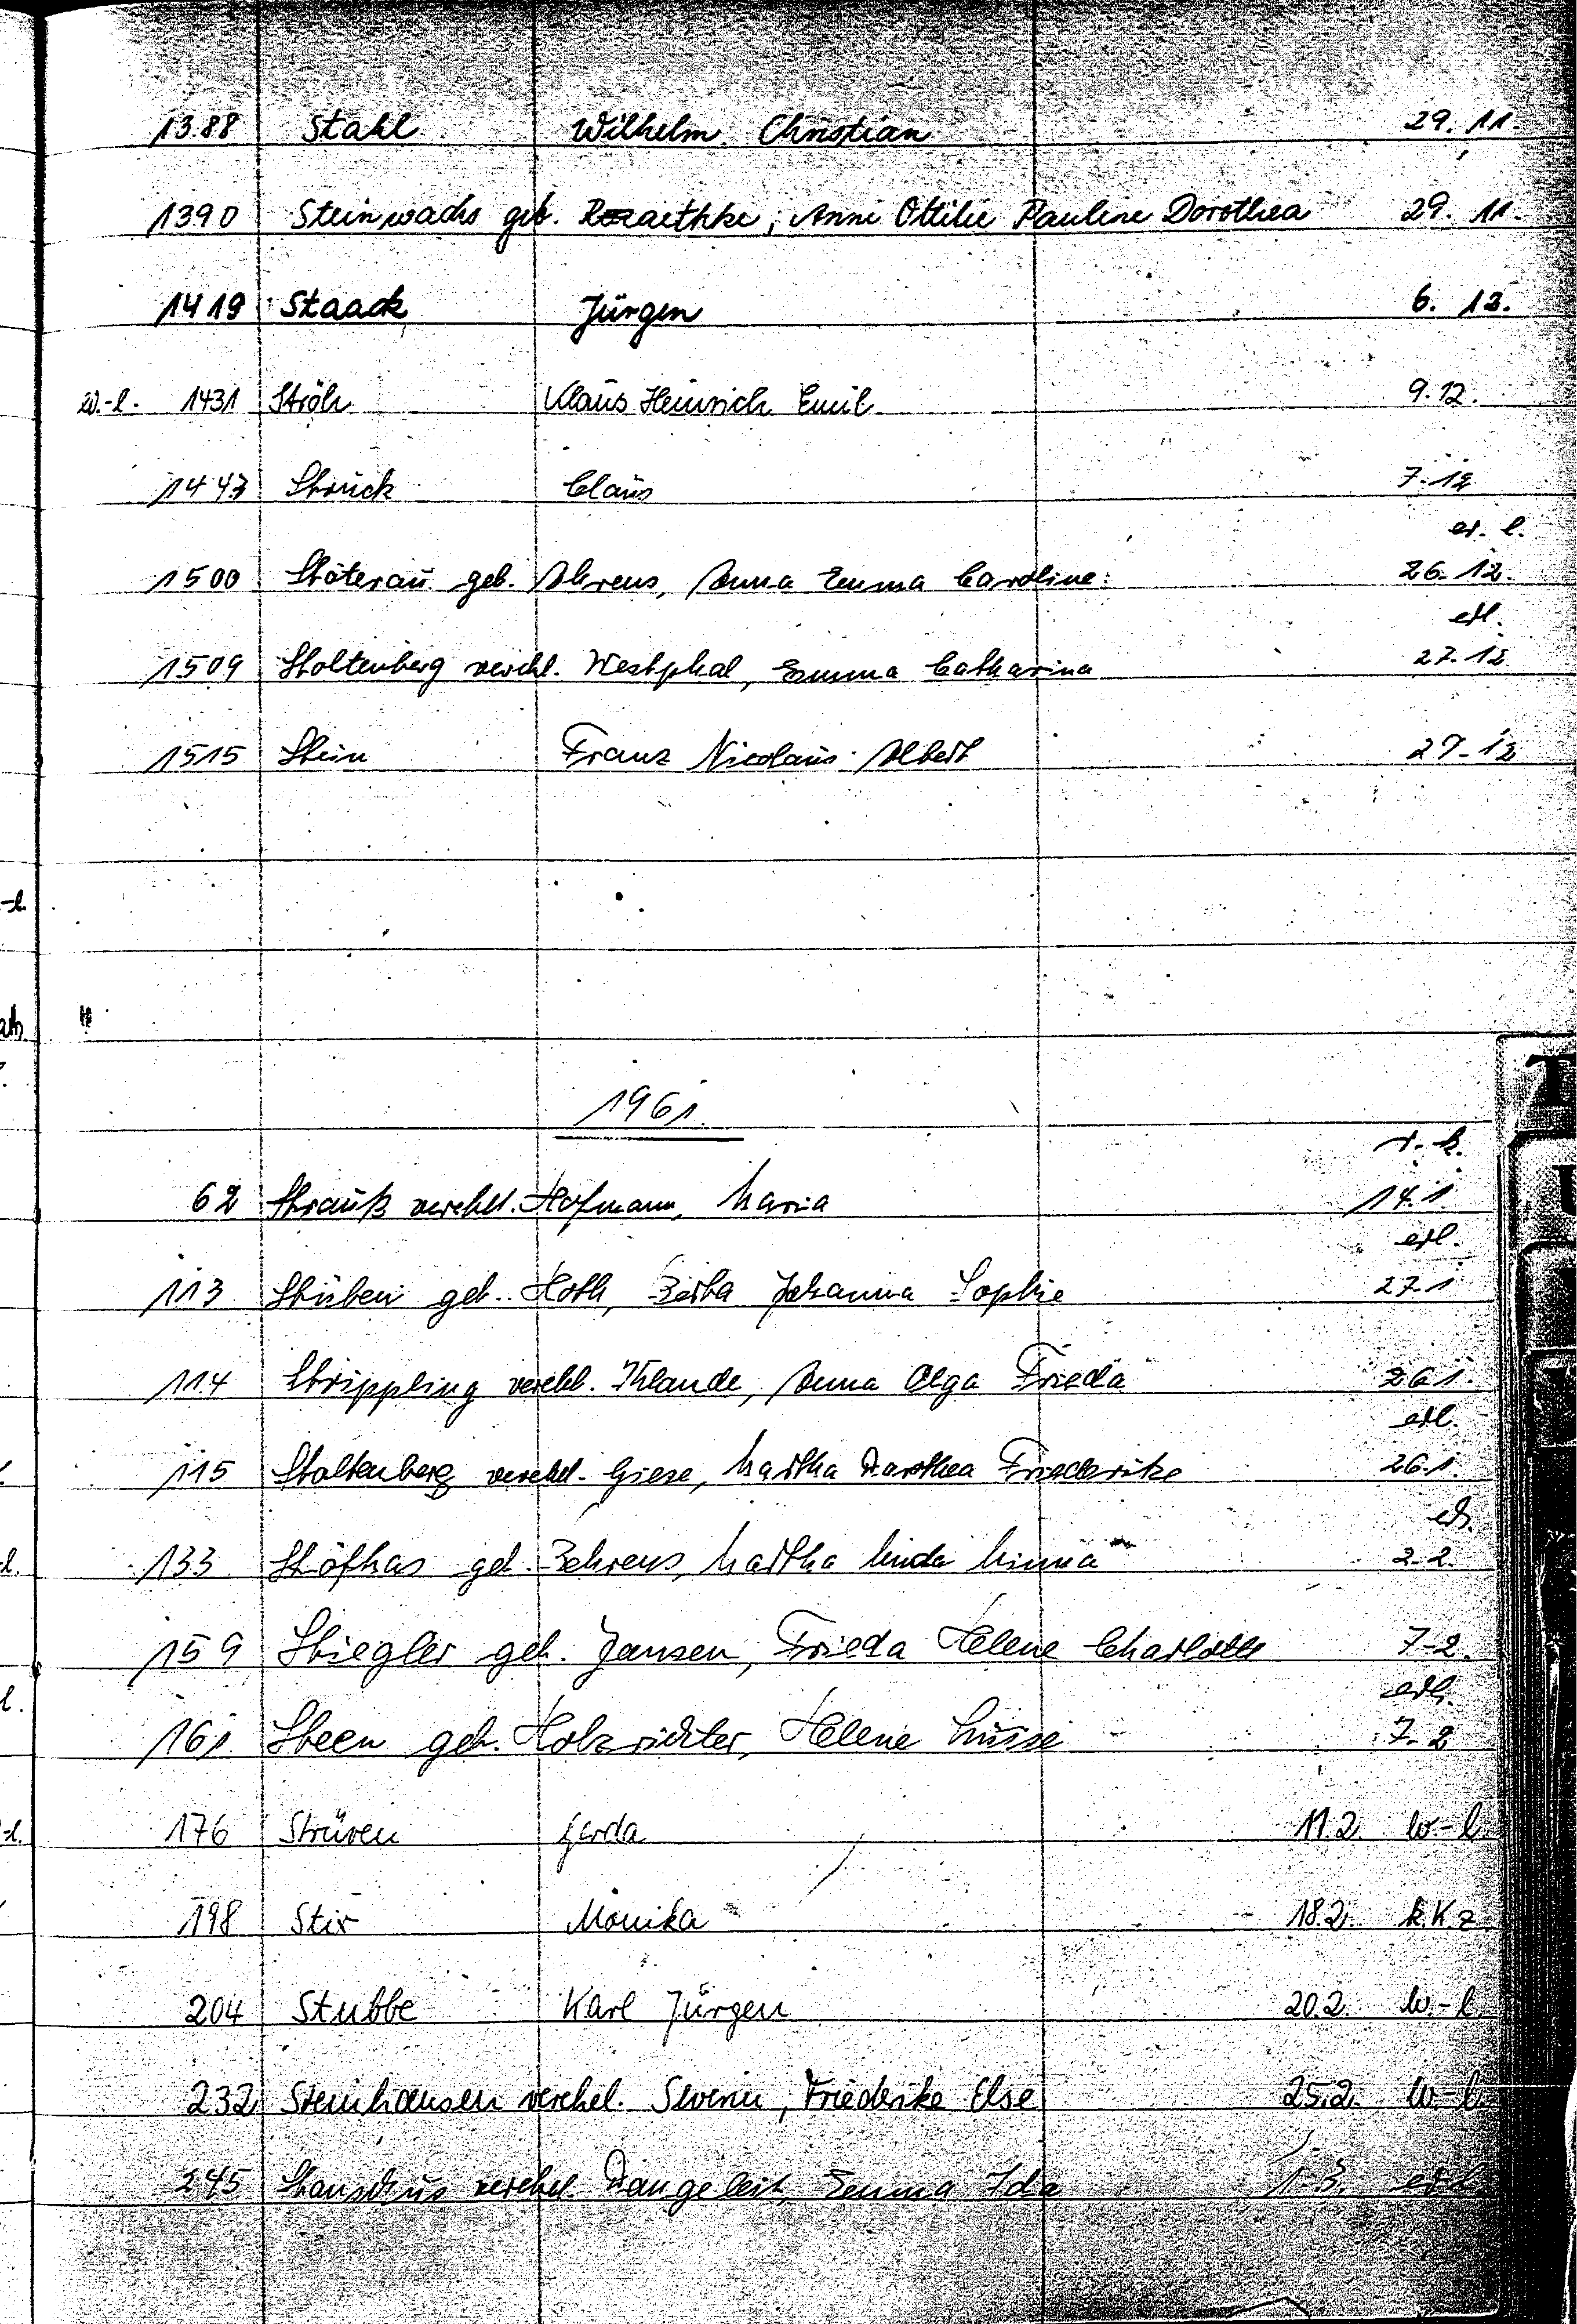 1388 Stahl Wilhelm Christian 29.11.
1390 Steinwachs geb. Raethke, Anni Ottilie Pauline Dorothea 29.11.
1419 Staack Jürgen 6.12.
w.-l. 1431 Ströh Klaus Heinrich Emil 9.12.
1443 Struck Claus 7.12
ev. l.
1500 Stöterau geb. Ahrens, Anna Emma Caroline 26.12.
evl.
1509 Stoltenberg verehl. Westphal, Emma Catharina 27.12
1515 Stein Franz Nicolaus Albert 27.12
1961
r.-k.
62 Strauß verehel. Hofmann, Maria 14.1.
evl.
113 Stüben geb. Hoth, Berta Johanna Sophie 27.1
114 Strippling verehl. Klande, Anna Olga Frieda 26.1.
evl.
115 Stoltenberg verehel. Giese, Martha Dorothea Friederike 26.1.
133 geb. Behrens, Martha Linda Minna 2.2.
159 Stiegler geb. Jansen, Frieda Helene Charlotte 7.2.
evl.
161 Steen geb. Holzrichter, Helene 7.2
176 Strüven Gerda 11.2. w.-l.
198 Stix Monika 18.2. k.Kz
204 Stubbe Karl Jürgen 20.2. w.-l.
232 Steinhausen verehel. Severin, Friederike Else 25.2. w.-l.
245 verehel. Emma Ida 1.3. evl.